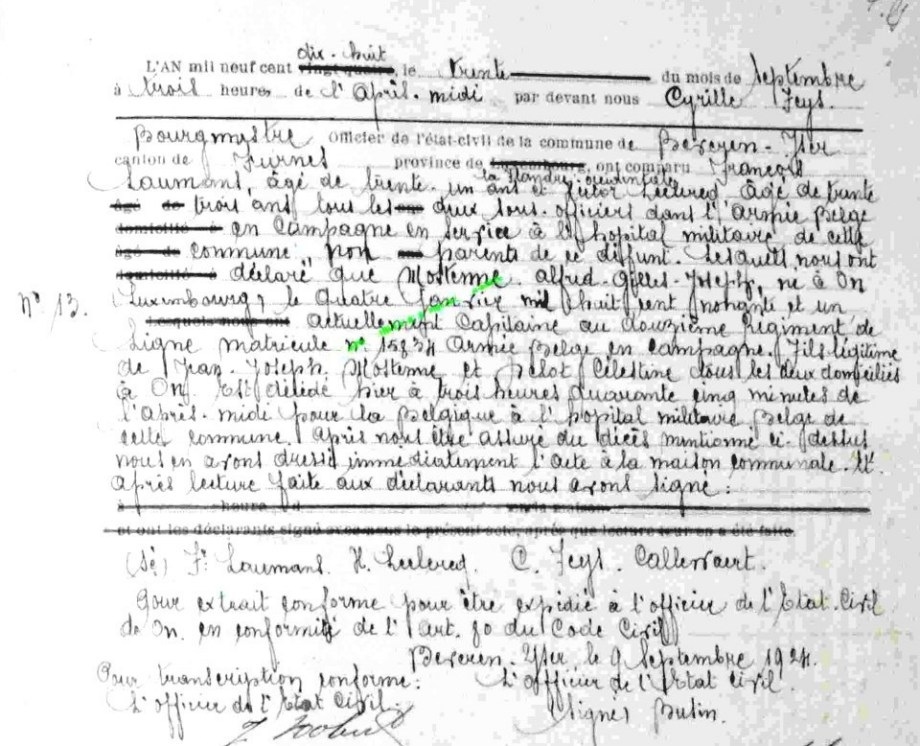 dix-huit
L'AN mil neuf cent vingt quatre, le trente du mois de Septembre
à trois heures de l'après-midi par devant nous Cyrille Feys.
Bourgmestre Officier de l'état-civil de la commune de Beveren-Yser
canton de Furnes province de Luxembourg, ont comparu François
la Flandre occidentale
Laumans, âgé de trente-un ans et Victor Leclercq âgé de trente
âgé de trois ans tous les deux sous-officiers dans l'Armée Belge
domicilié à en Campagne en service à l'hopital militaire de cette
âgé de commune, non parents de ce défunt. Lesquels nous ont
domicilié à déclaré que Mostenne Alfred-Gilles-Joseph, né à On
N° 13.
Luxembourg, le quatre janvier mil huit cent nonante et un
Lesquels nous ont actuellement Capitaine au douzième Régiment de
Ligne matricule n° 15834 Armée Belge en campagne. Fils légitime
de Jean-Joseph Mostenne et Pelot Célestine tous les deux domiciliés
à On. Est décédé hier à trois heures quarante cinq minutes de
l'après-midi pour la Belgique à l'hopital militaire Belge de
cette commune. Après nous être assuré du décès mentionné ci-dessus
nous en avons dressé immédiatement l'acte à la maison communale. Et
après lecture faite aux déclarants nous avons signé :
à heures du
et ont les déclarants signé avec nous le présent acte, après que lecture leur en a été faite.
(sé) Fr Laumans. H. Leclercq. C. Feys. Callewaert.
Pour extrait conforme pour être expédié à l'officier de l'Etat-Civil
de On. en conformité de l'art. 80 du Code Civil
Beveren-Yser, le 9 Septembre 1924.
Pour transcription conforme : L'officier de l'Etat civil
L'officier de l'Etat Civil. Signé